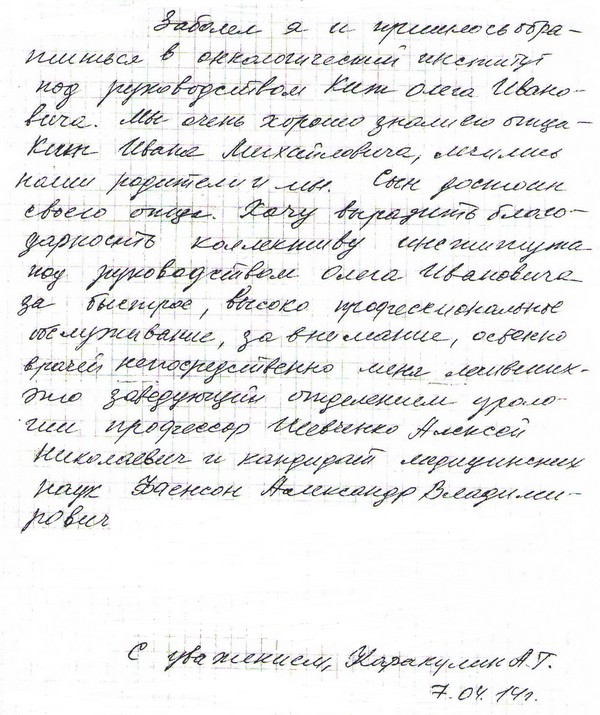 Заболел я и пришлось обра-
титься в онкологический институт
под руководством Кит Олега Ивано-
вича. Мы очень хорошо знали его отца-
Кит Ивана Михайловича, лечились
наши родители и мы. Сын достоин
своего отца. Хочу выразить благо-
дарность коллективу института
под руководством Олега Ивановича
за быстрое, высоко профессиональное
обслуживание, за внимание, особенно
врачей непосредственно меня лечивших-
это заведующий отделением уроло-
гии профессор Шевченко Алексей
Николаевич и кандидат медицинских
наук Фаенсон Александр Владими-
рович
С уважением, Каракулин А.Т.
7.04.14г.